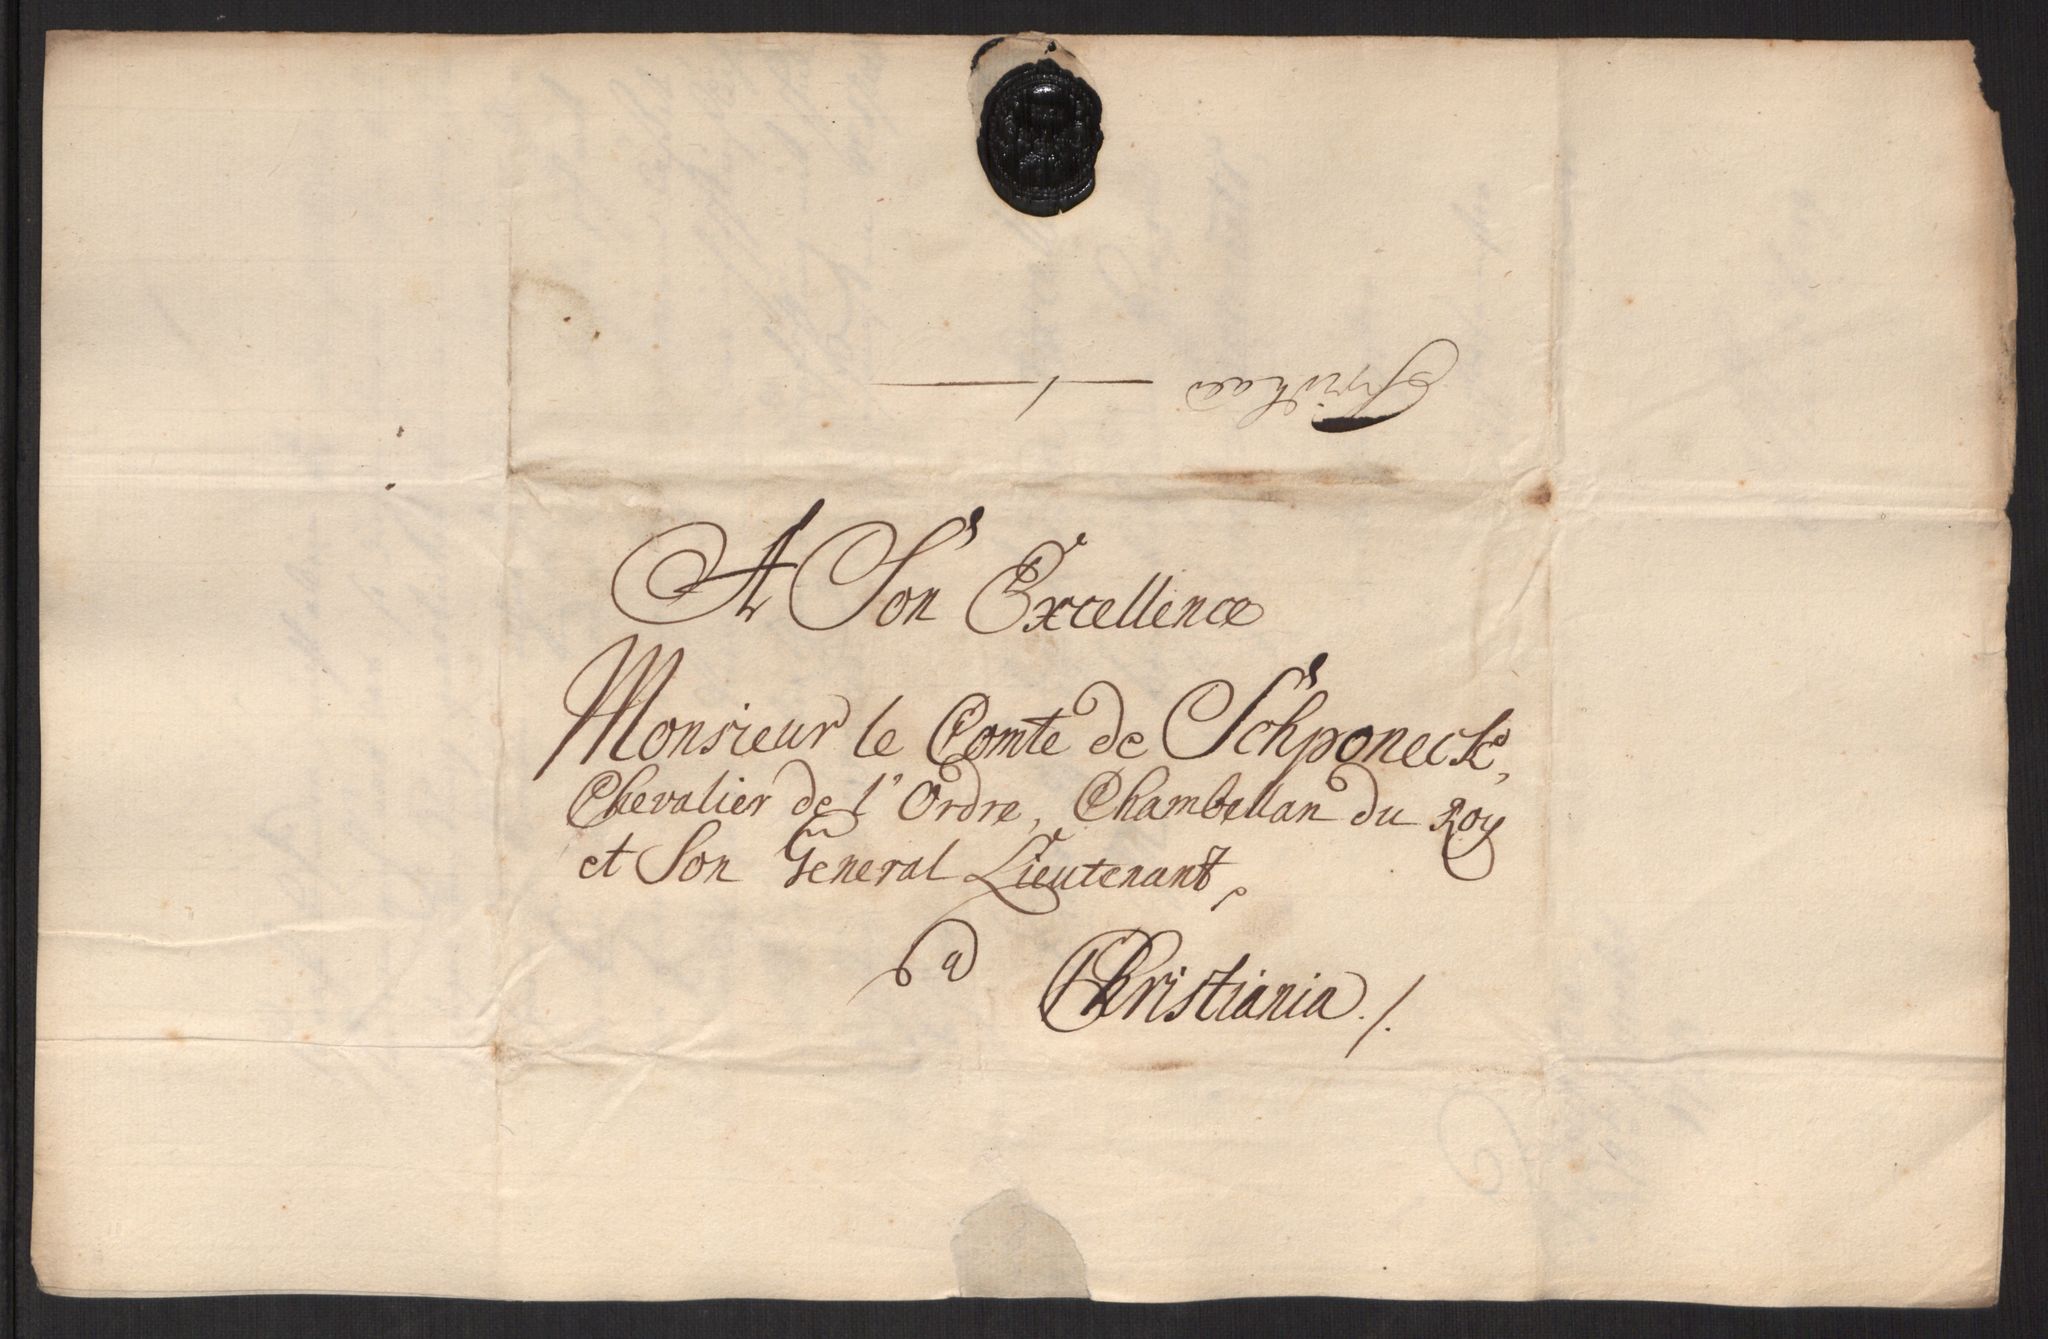 A Son Excellence
Monsieur le Comte de Schponeck,
Chevalier de l'Ordre, Chambellan du Roy
et Son General Lieutenant,
a Christiania ./.